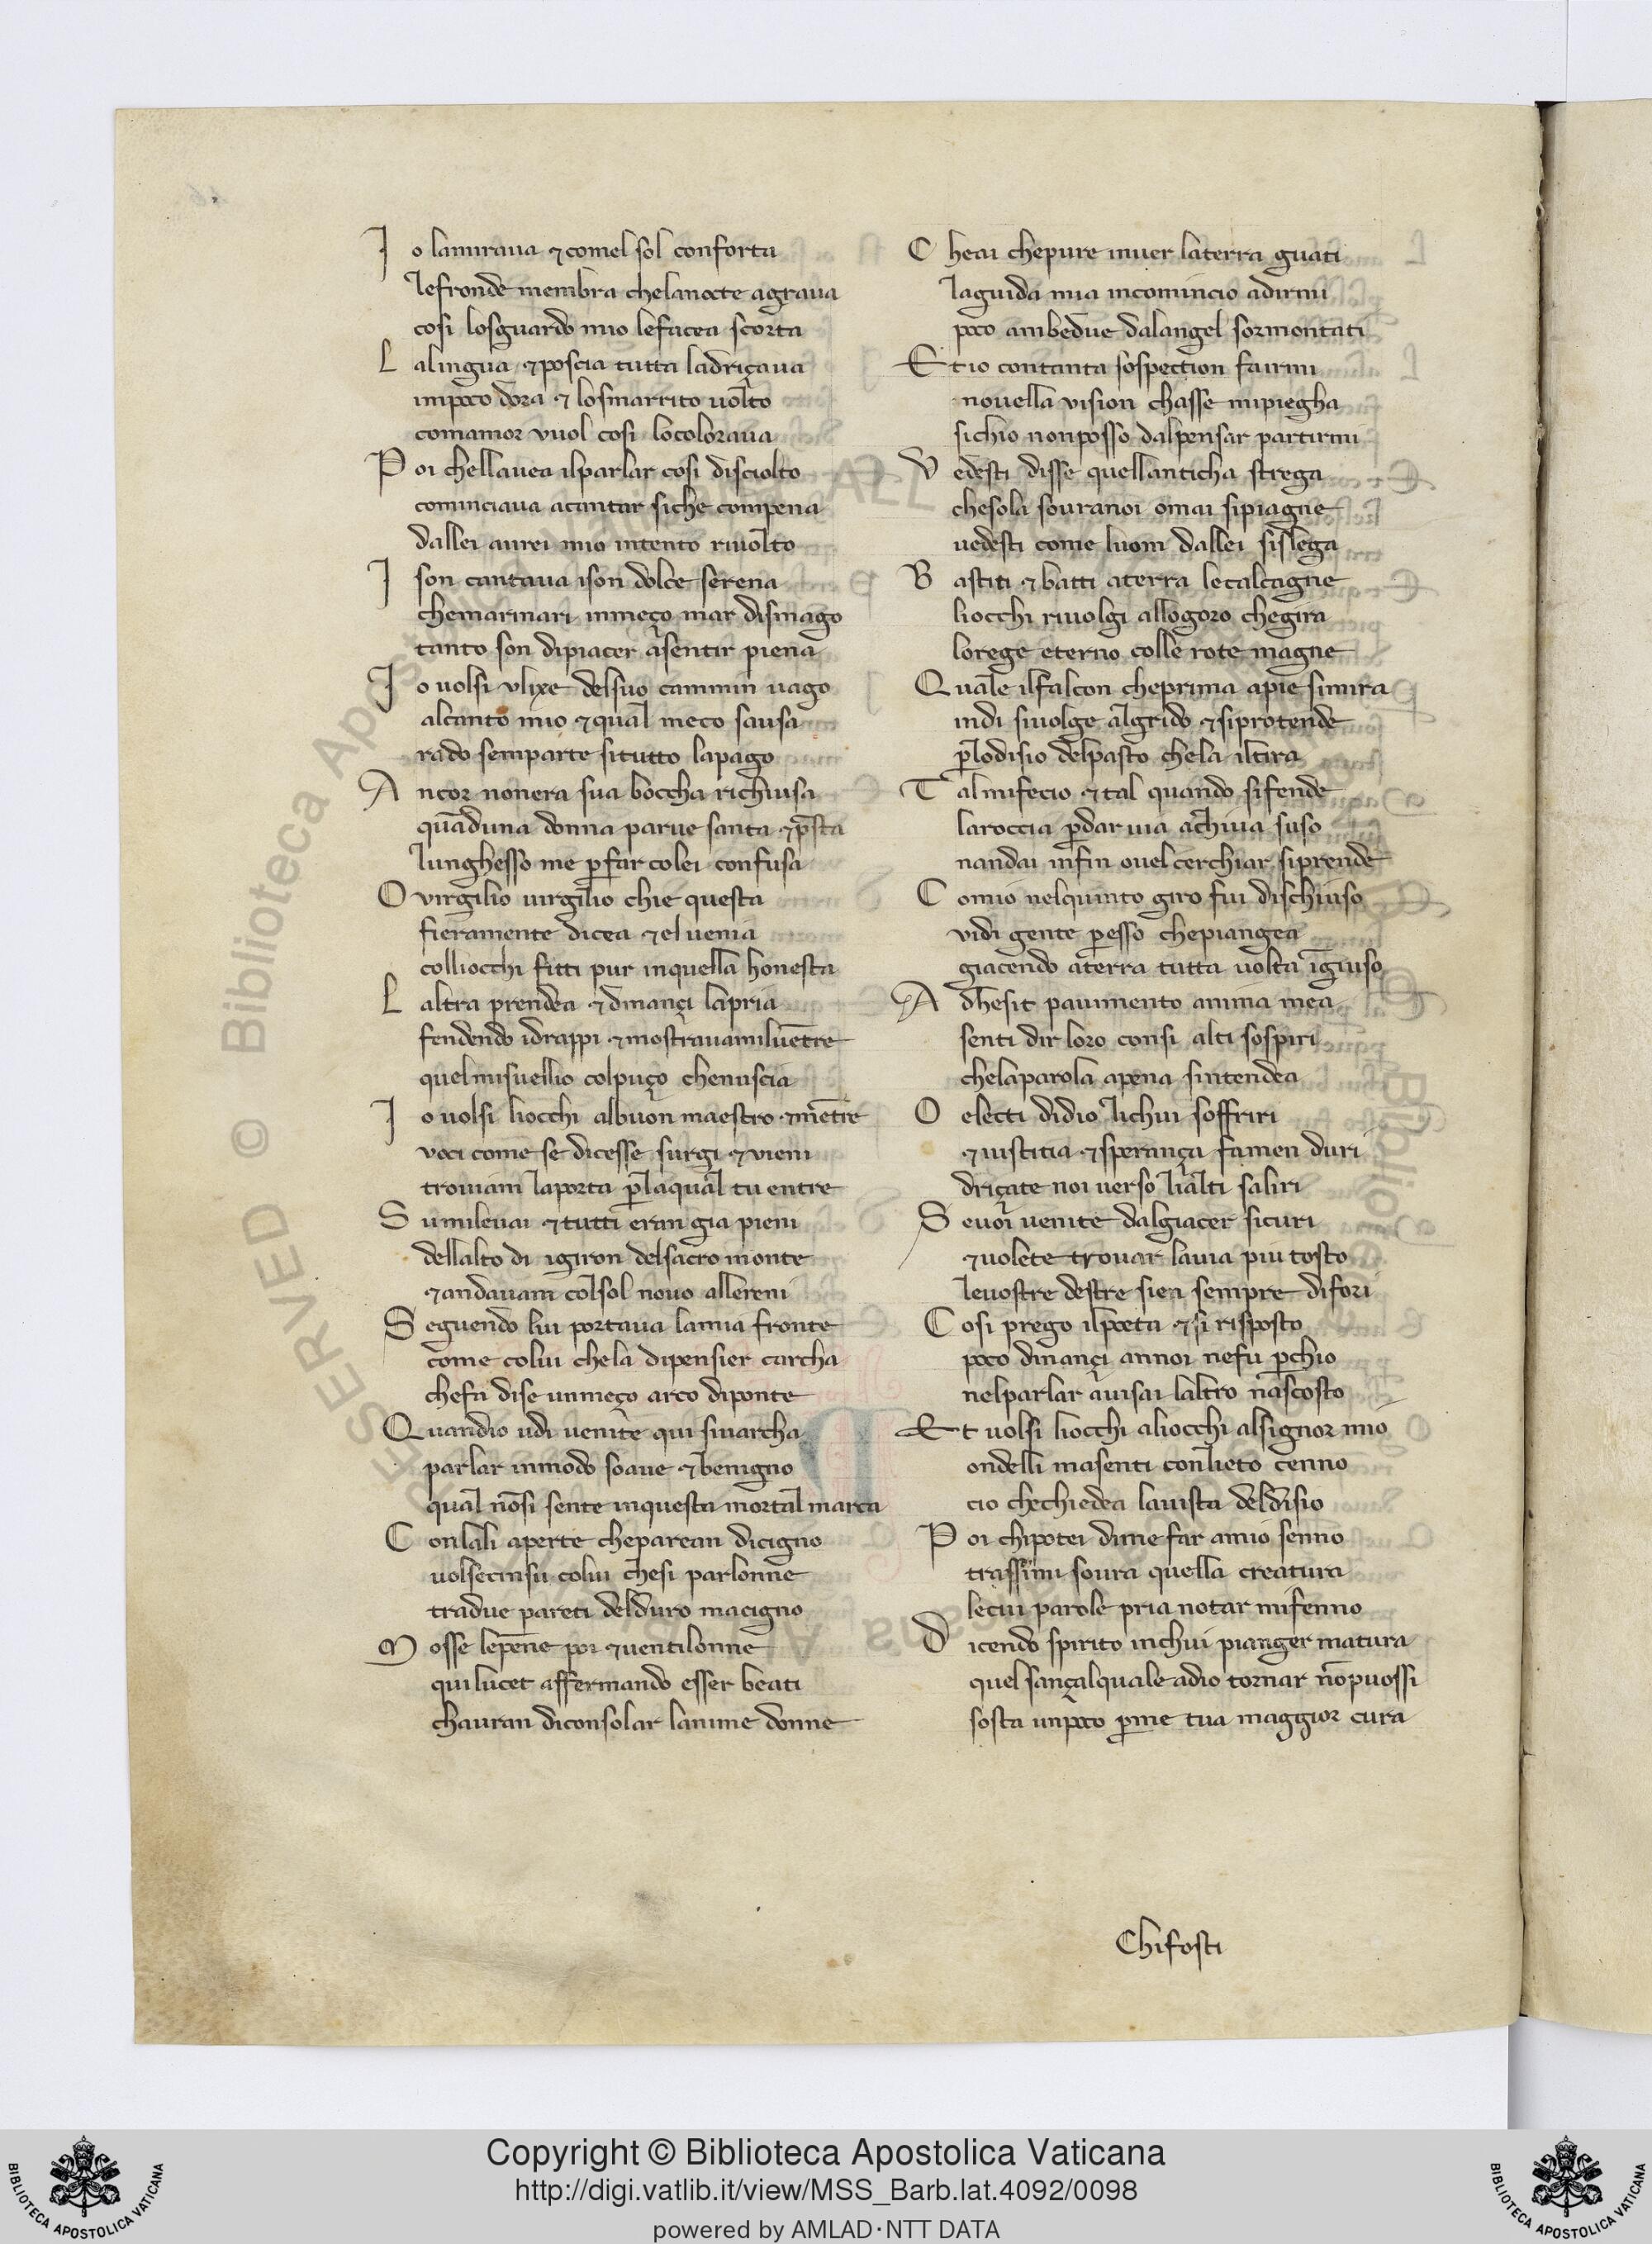 Io lamirava ⁊ comel sol conforta
lefronde membra chelanocte agrava
cosi losguardo mio lefacea scorta
L alingua ⁊ poscia tutta ladriçava
inpoco dora ⁊ losmarrito volto
comamor vuol cosi locolorava
P oi chellavea ilparlar cosi disciolto
cominciava acantar siche compena
dallei avrei mio intento rivolto
I son cantava ison dolce serena
chemarinari inmeço mar dismago
tanto son dipiacer asentir piena
I o volsi vlixe delsuo cammin vago
alcanto mio ⁊ qual meco sausa
rado semparte situtto lapago
A ncor nonera sua boccha richiusa
quãduna donna parve santa ⁊ p̃sta
lunghesso me p̱far colei confusa
O virgilio virgilio chie questa
fieramente dicea ⁊ el venia
colliocchi fitti pur inquella honesta
L altra prendea ⁊ dinançi lapria
fendendo idrappi ⁊ mostravamilvẽtre
quelmisveglio colpuço chenuscia
I o volsi liocchi albuon maestro ⁊ mẽtre
voci come se dicesse surgi ⁊ vieni
troviam laporta p̱laqual tu entre
S u milevai ⁊ tutti eran gia pieni
dellalto di igiron delsacro monte
⁊ andavam colsol novo allereni
S eguendo lui portava lamia fronte
come colui chela dipensier carcha
chefa dise unmeço arco diponte
Q uandio udi venite qui sivarcha
parlar inmodo soave ⁊ benigno
qual nõsi sente inquesta mortal marca
C onlali aperte cheparean dicigno
volsecinsu colui chesi parlonne
tradue pareti delduro macigno
M osse lepẽne poi ⁊ ventilonne
qui lucet affermando esser beati
chavran diconsolar lanime donne
C heai chepure inver laterra guati
laguida mia incomincio adirmi
poco ambedue dalangel sormontati
E t io contanta sospection fairmi
novella vision chasse mipiegha
sichio nonposso dalpensar partirmi
V edesti disse quellanticha strega
chesola sovranoi omai sipiagne
vedesti come luom dallei sislega
B astiti ⁊ batti aterra lecalcagne
liocchi rivolgi allogoro chegira
lorege eterno colle rote magne
Q uale ilfalcon cheprima apie simira
indi sivolge algrido ⁊ siprotende
p̱lodisio delpasto chela iltira
T almifecio ⁊ tal quando sifende
laroccia p̱dar via achiva suso
nandai infin ovel cerchiar siprende
C omio nelquinto giro fui dischiuso
vidi gente p̱esso chepiangea
giacendo aterra tutta volta ĩgiuso
A dhesit pavimento anima mea
senti dir loro consi alti sospiri
chelaparola apena sintendea
O electi didio lichui soffriri
⁊ iustitia ⁊ sperança famen duri
driçate noi verso lialti saliri
S evoi venite dalgiacer sicuri
⁊ volete trovar lavia piu tosto
levostre destre sien sempre difori
C osi prego ilpoeta ⁊ si risposto
poco dinançi annoi nefu p̱chio
nelparlar avisai laltro nascosto
E t volsi liocchi aliocchi alsignor mio
ondelli masenti conlieto cenno
cio chechiedea lavista deldisio
P oi chipotei dime far amio senno
trassimi sovra quella creatura
lecui parole pria notar mifenno
D icendo spirito inchui pianger matura
quel sançalquale adio tornar nõpuossi
sosta unpoco p̱me tua maggior cura
Chifosti
RESERVED © Biblioteca Apostolica Vaticana
ALL
Copyright © Biblioteca Apostolica Vaticana
http://digi.vatlib.it/view/MSS_Barb.lat.4092/0098
powered by AMLAD·NTT DATA
BIBLIOTECA APOSTOLICA VATICANA
BIBLIOTECA APOSTOLICA VATICANA